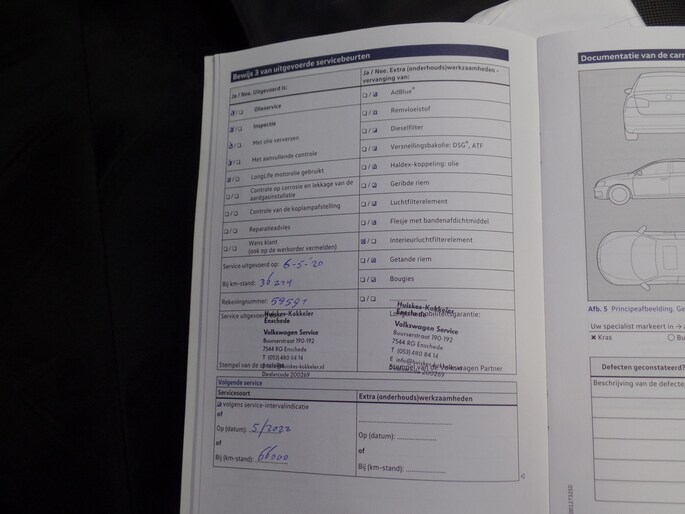 Bewijs 3 van uitgevoerde servicebeurten
Ja / Nee. Uitgevoerd is:
Olieservice
Inspectie
Met olie verversen
Met aanvullende controle
LongLife motorolie gebruikt
Controle op corrosie en lekkage van de
aardgasinstallatie
Controle van de koplampafstelling
Reparatieadvies
Wens klant
(ook op de werkorder vermelden)
Service uitgevoerd op: 6-5-'20
Bij km-stand: 36211
Rekeningnummer: 59591
Service uitgevoerd door:
Huiskes-Kokkeler
Enschede
Volkswagen Service
Buurserstraat 190-192
7544 RG Enschede
T (053) 480 84 14
Dealercode 200269
Ja / Nee. Extra (onderhouds)werkzaamheden -
vervanging van:
AdBlue®
Remvloeistof
Dieselfilter
Versnellingsbakolie: DSG®, ATF
Haldex-koppeling: olie
Geribde riem
Luchtfilterelement
Flesje met bandenafdichtmiddel
Interieurluchtfilterelement
Getande riem
Bougies
Huiskes-Kokkeler
Enschede
Volkswagen Service
Buurserstraat 190-192
7544 RG Enschede
T (053) 480 84 14
Stempel van de Volkswagen Partner
Volgende service
Servicesoort
volgens service-intervalindicatie
of
Op (datum): 5/2022
of
Bij (km-stand): 66000
Extra (onderhouds)werkzaamheden
Op (datum):
of
Bij (km-stand):
Documentatie van de carr
Afb. 5 Principeafbeelding. Ge
Uw specialist markeert in
Kras
Bu
Defecten geconstateerd?
Beschrijving van de defecte